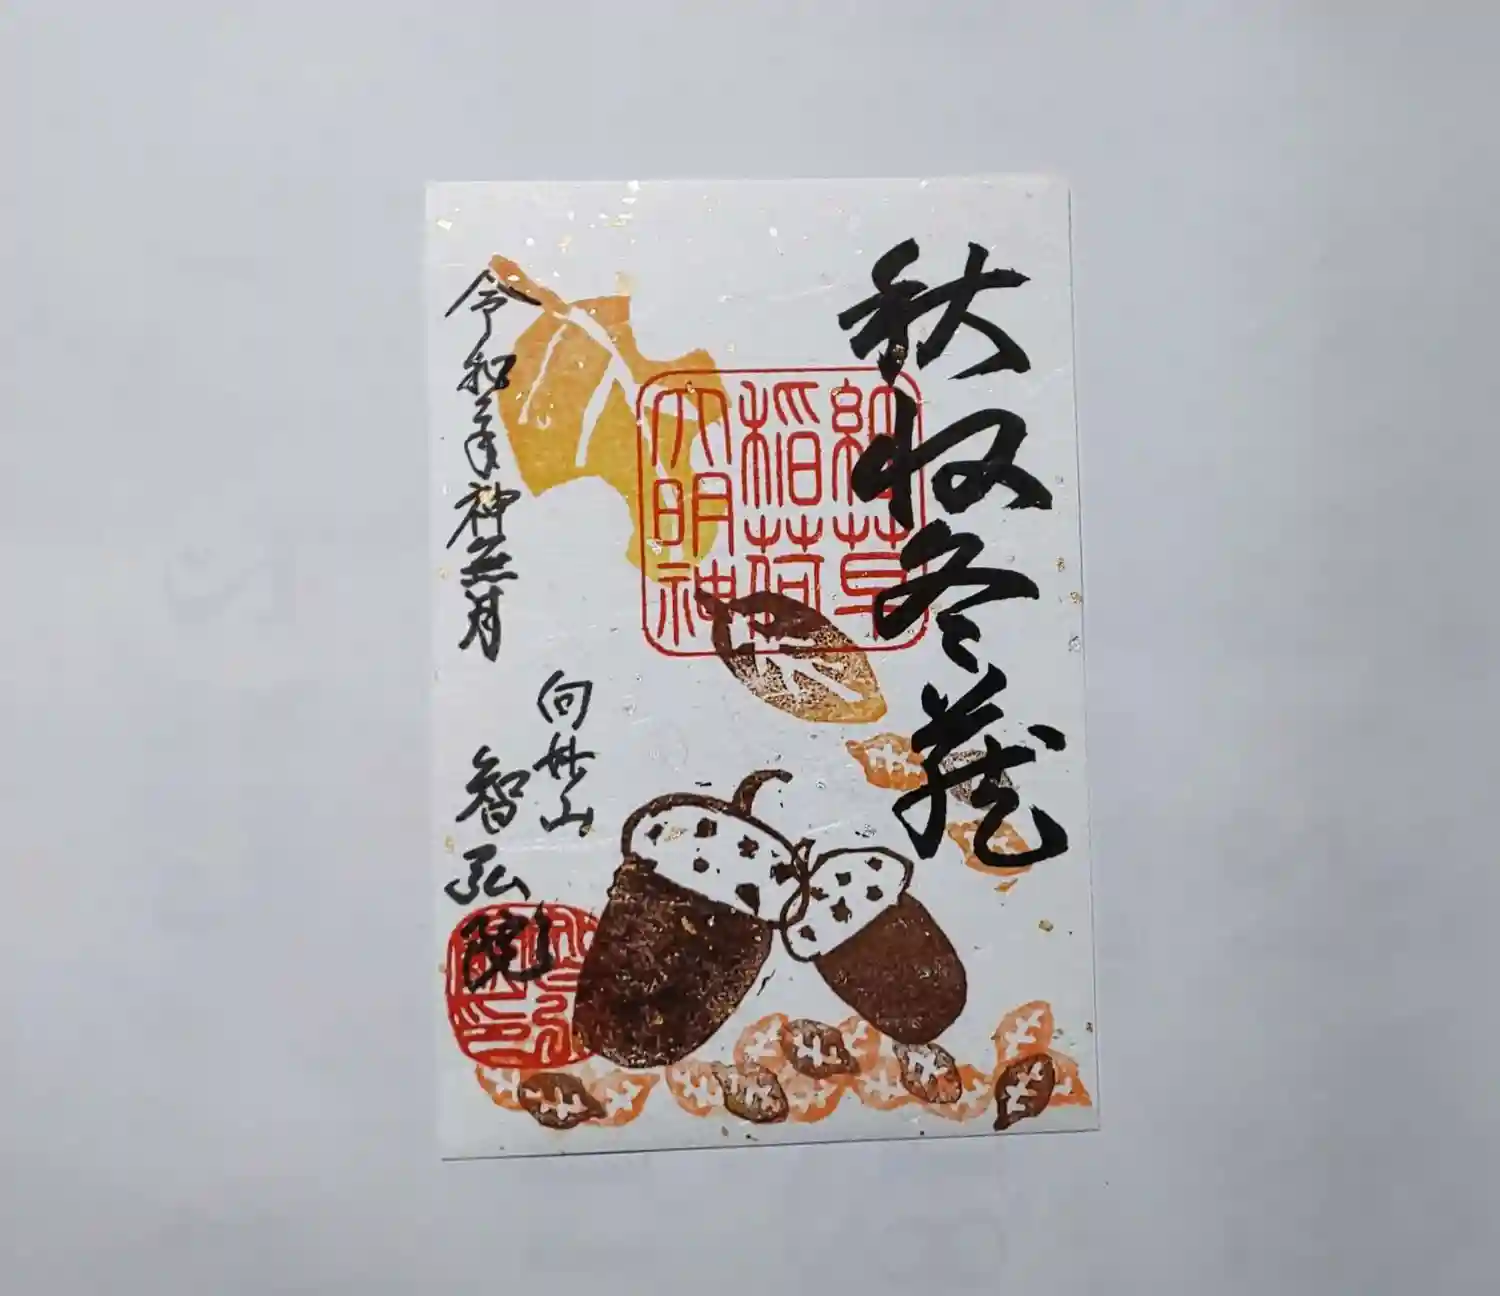 秋収冬蔵
納草
稲荷
大明神
令和二年神無月
向林山
智弘院